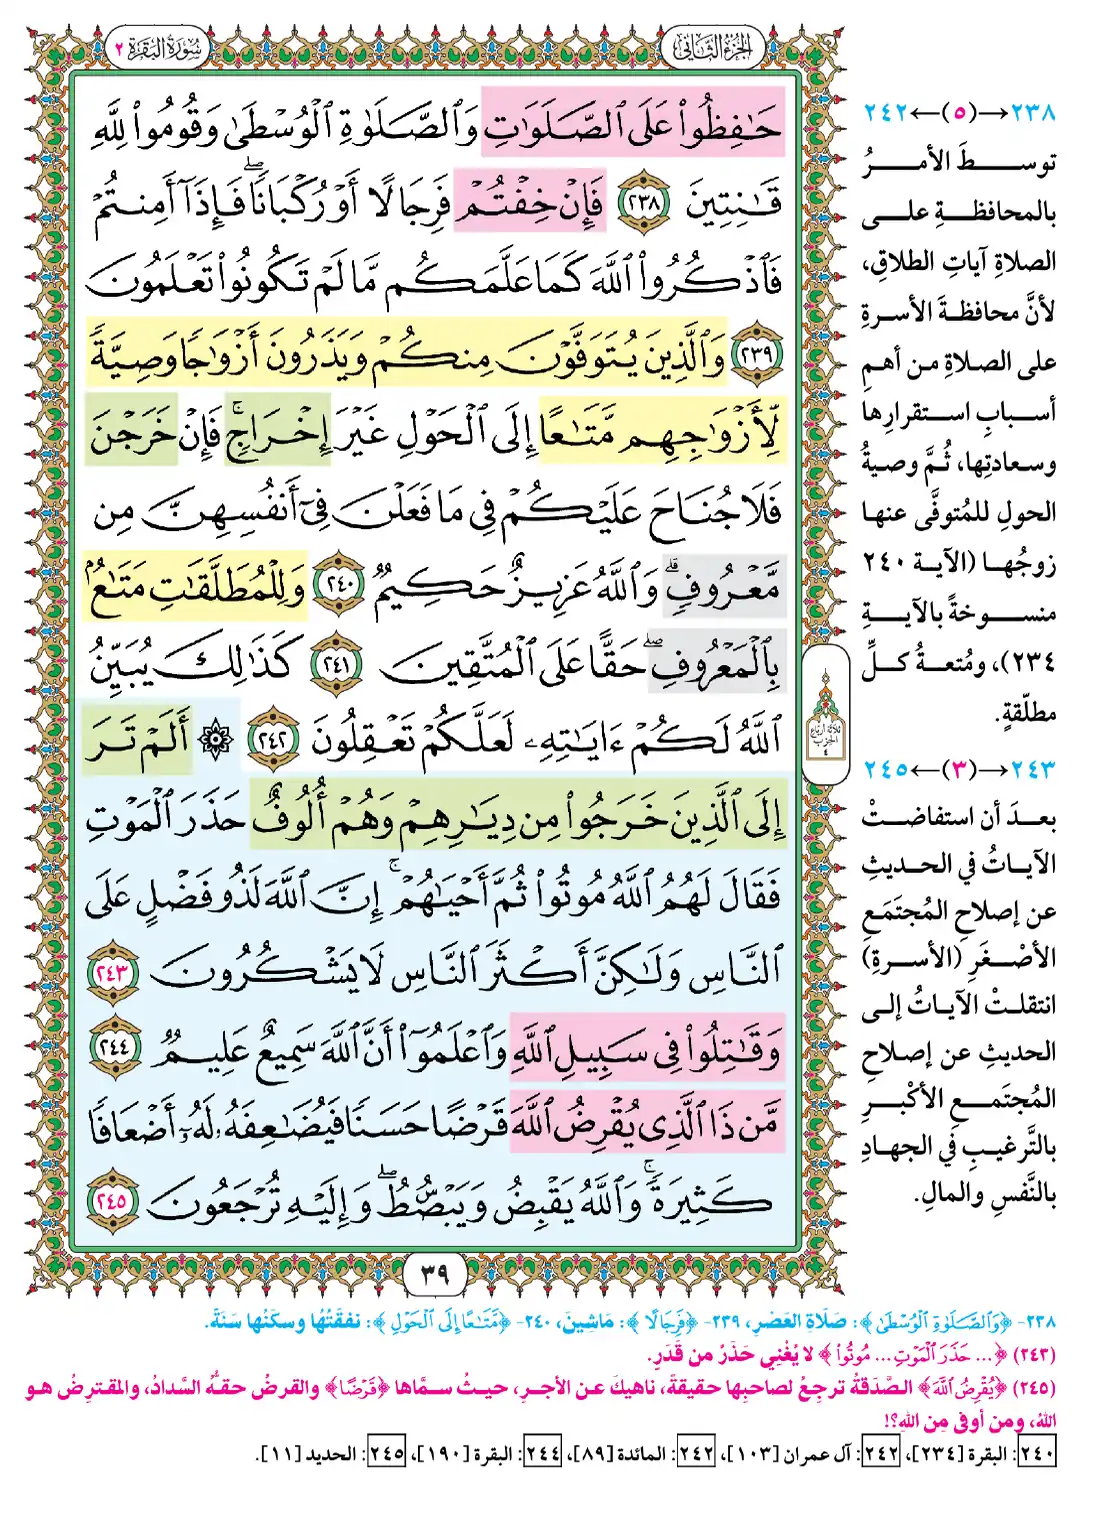 الجزء الثاني
سورة البقرة ٢
حَٰفِظُوا۟ عَلَى ٱلصَّلَوَٰتِ وَٱلصَّلَوٰةِ ٱلْوُسْطَىٰ وَقُومُوا۟ لِلَّهِ
قَٰنِتِينَ ٢٣٨ فَإِنْ خِفْتُمْ فَرِجَالًا أَوْ رُكْبَانًا ۖ فَإِذَآ أَمِنتُمْ
فَٱذْكُرُوا۟ ٱللَّهَ كَمَا عَلَّمَكُم مَّا لَمْ تَكُونُوا۟ تَعْلَمُونَ
٢٣٩ وَٱلَّذِينَ يُتَوَفَّوْنَ مِنكُمْ وَيَذَرُونَ أَزْوَٰجًا وَصِيَّةً
لِّأَزْوَٰجِهِم مَّتَٰعًا إِلَى ٱلْحَوْلِ غَيْرَ إِخْرَاجٍ ۚ فَإِنْ خَرَجْنَ
فَلَا جُنَاحَ عَلَيْكُمْ فِى مَا فَعَلْنَ فِىٓ أَنفُسِهِنَّ مِن
مَّعْرُوفٍ ۗ وَٱللَّهُ عَزِيزٌ حَكِيمٌ ٢٤٠ وَلِلْمُطَلَّقَٰتِ مَتَٰعٌۢ
بِٱلْمَعْرُوفِ ۖ حَقًّا عَلَى ٱلْمُتَّقِينَ ٢٤١ كَذَٰلِكَ يُبَيِّنُ
ٱللَّهُ لَكُمْ ءَايَٰتِهِۦ لَعَلَّكُمْ تَعْقِلُونَ ٢٤٢ ۞ أَلَمْ تَرَ
إِلَى ٱلَّذِينَ خَرَجُوا۟ مِن دِيَٰرِهِمْ وَهُمْ أُلُوفٌ حَذَرَ ٱلْمَوْتِ
فَقَالَ لَهُمُ ٱللَّهُ مُوتُوا۟ ثُمَّ أَحْيَٰهُمْ ۚ إِنَّ ٱللَّهَ لَذُو فَضْلٍ عَلَى
ٱلنَّاسِ وَلَٰكِنَّ أَكْثَرَ ٱلنَّاسِ لَا يَشْكُرُونَ ٢٤٣
وَقَٰتِلُوا۟ فِى سَبِيلِ ٱللَّهِ وَٱعْلَمُوٓا۟ أَنَّ ٱللَّهَ سَمِيعٌ عَلِيمٌ ٢٤٤
مَّن ذَا ٱلَّذِى يُقْرِضُ ٱللَّهَ قَرْضًا حَسَنًا فَيُضَٰعِفَهُۥ لَهُۥٓ أَضْعَافًا
كَثِيرَةً ۚ وَٱللَّهُ يَقْبِضُ وَيَبْصُۜطُ ۖ وَإِلَيْهِ تُرْجَعُونَ ٢٤٥
٣٩
ثلاثة أرباع
الحزب
٤
٢٣٨→(٥)←٢٤٢
توسطَ الأمرُ
بالمحافظةِ على
الصلاةِ آياتِ الطلاقِ،
لأنَّ محافظةَ الأسرةِ
على الصلاةِ من أهمِ
أسبابِ استقرارِها
وسعادتِها، ثُمَّ وصيةُ
الحولِ للمُتوفَّى عنها
زوجُها (الآية ٢٤٠
منسوخةٌ بالآيةِ
٢٣٤)، ومُتعةُ كلِّ
مطلّقةٍ.
٢٤٣→(٣)←٢٤٥
بعدَ أن استفاضتْ
الآياتُ في الحديثِ
عن إصلاحِ المُجتَمَعِ
الأصْغَرِ (الأسرةِ)
انتقلتْ الآياتُ إلى
الحديثِ عن إصلاحِ
المُجتَمعِ الأكْبرِ
بالتَّرغيبِ في الجهادِ
بالنَّفسِ والمالِ.
٢٣٨- ﴿وَٱلصَّلَوٰةِ ٱلْوُسْطَىٰ﴾: صَلَاةِ العَصْرِ، ٢٣٩- ﴿فَرِجَالًا﴾: مَاشِينَ، ٢٤٠- ﴿مَّتَٰعًا إِلَى ٱلْحَوْلِ﴾: نفقَتُهَا وسكَنُها سَنَةً.
(٢٤٣) ﴿... حَذَرَ ٱلْمَوْتِ ... مُوتُوا۟﴾ لا يُغْنِي حَذَرٌ من قَدَرٍ.
(٢٤٥) ﴿يُقْرِضُ ٱللَّهَ﴾ الصَّدَقةُ ترجِعُ لصاحبِها حقيقةً، ناهيكَ عن الأجرِ، حيثُ سمَّاها ﴿قَرْضًا﴾ والقرضُ حقـُّه السَّدادُ، والمقترِضُ هو
اللهُ، ومن أوفى مِن اللهِ؟!
٢٤٠: البقرة [٢٣٤]، ٢٤٢: آل عمران [١٠٣]، ٢٤٢: المائدة [٨٩]، ٢٤٤: البقرة [١٩٠]، ٢٤٥: الحديد [١١].